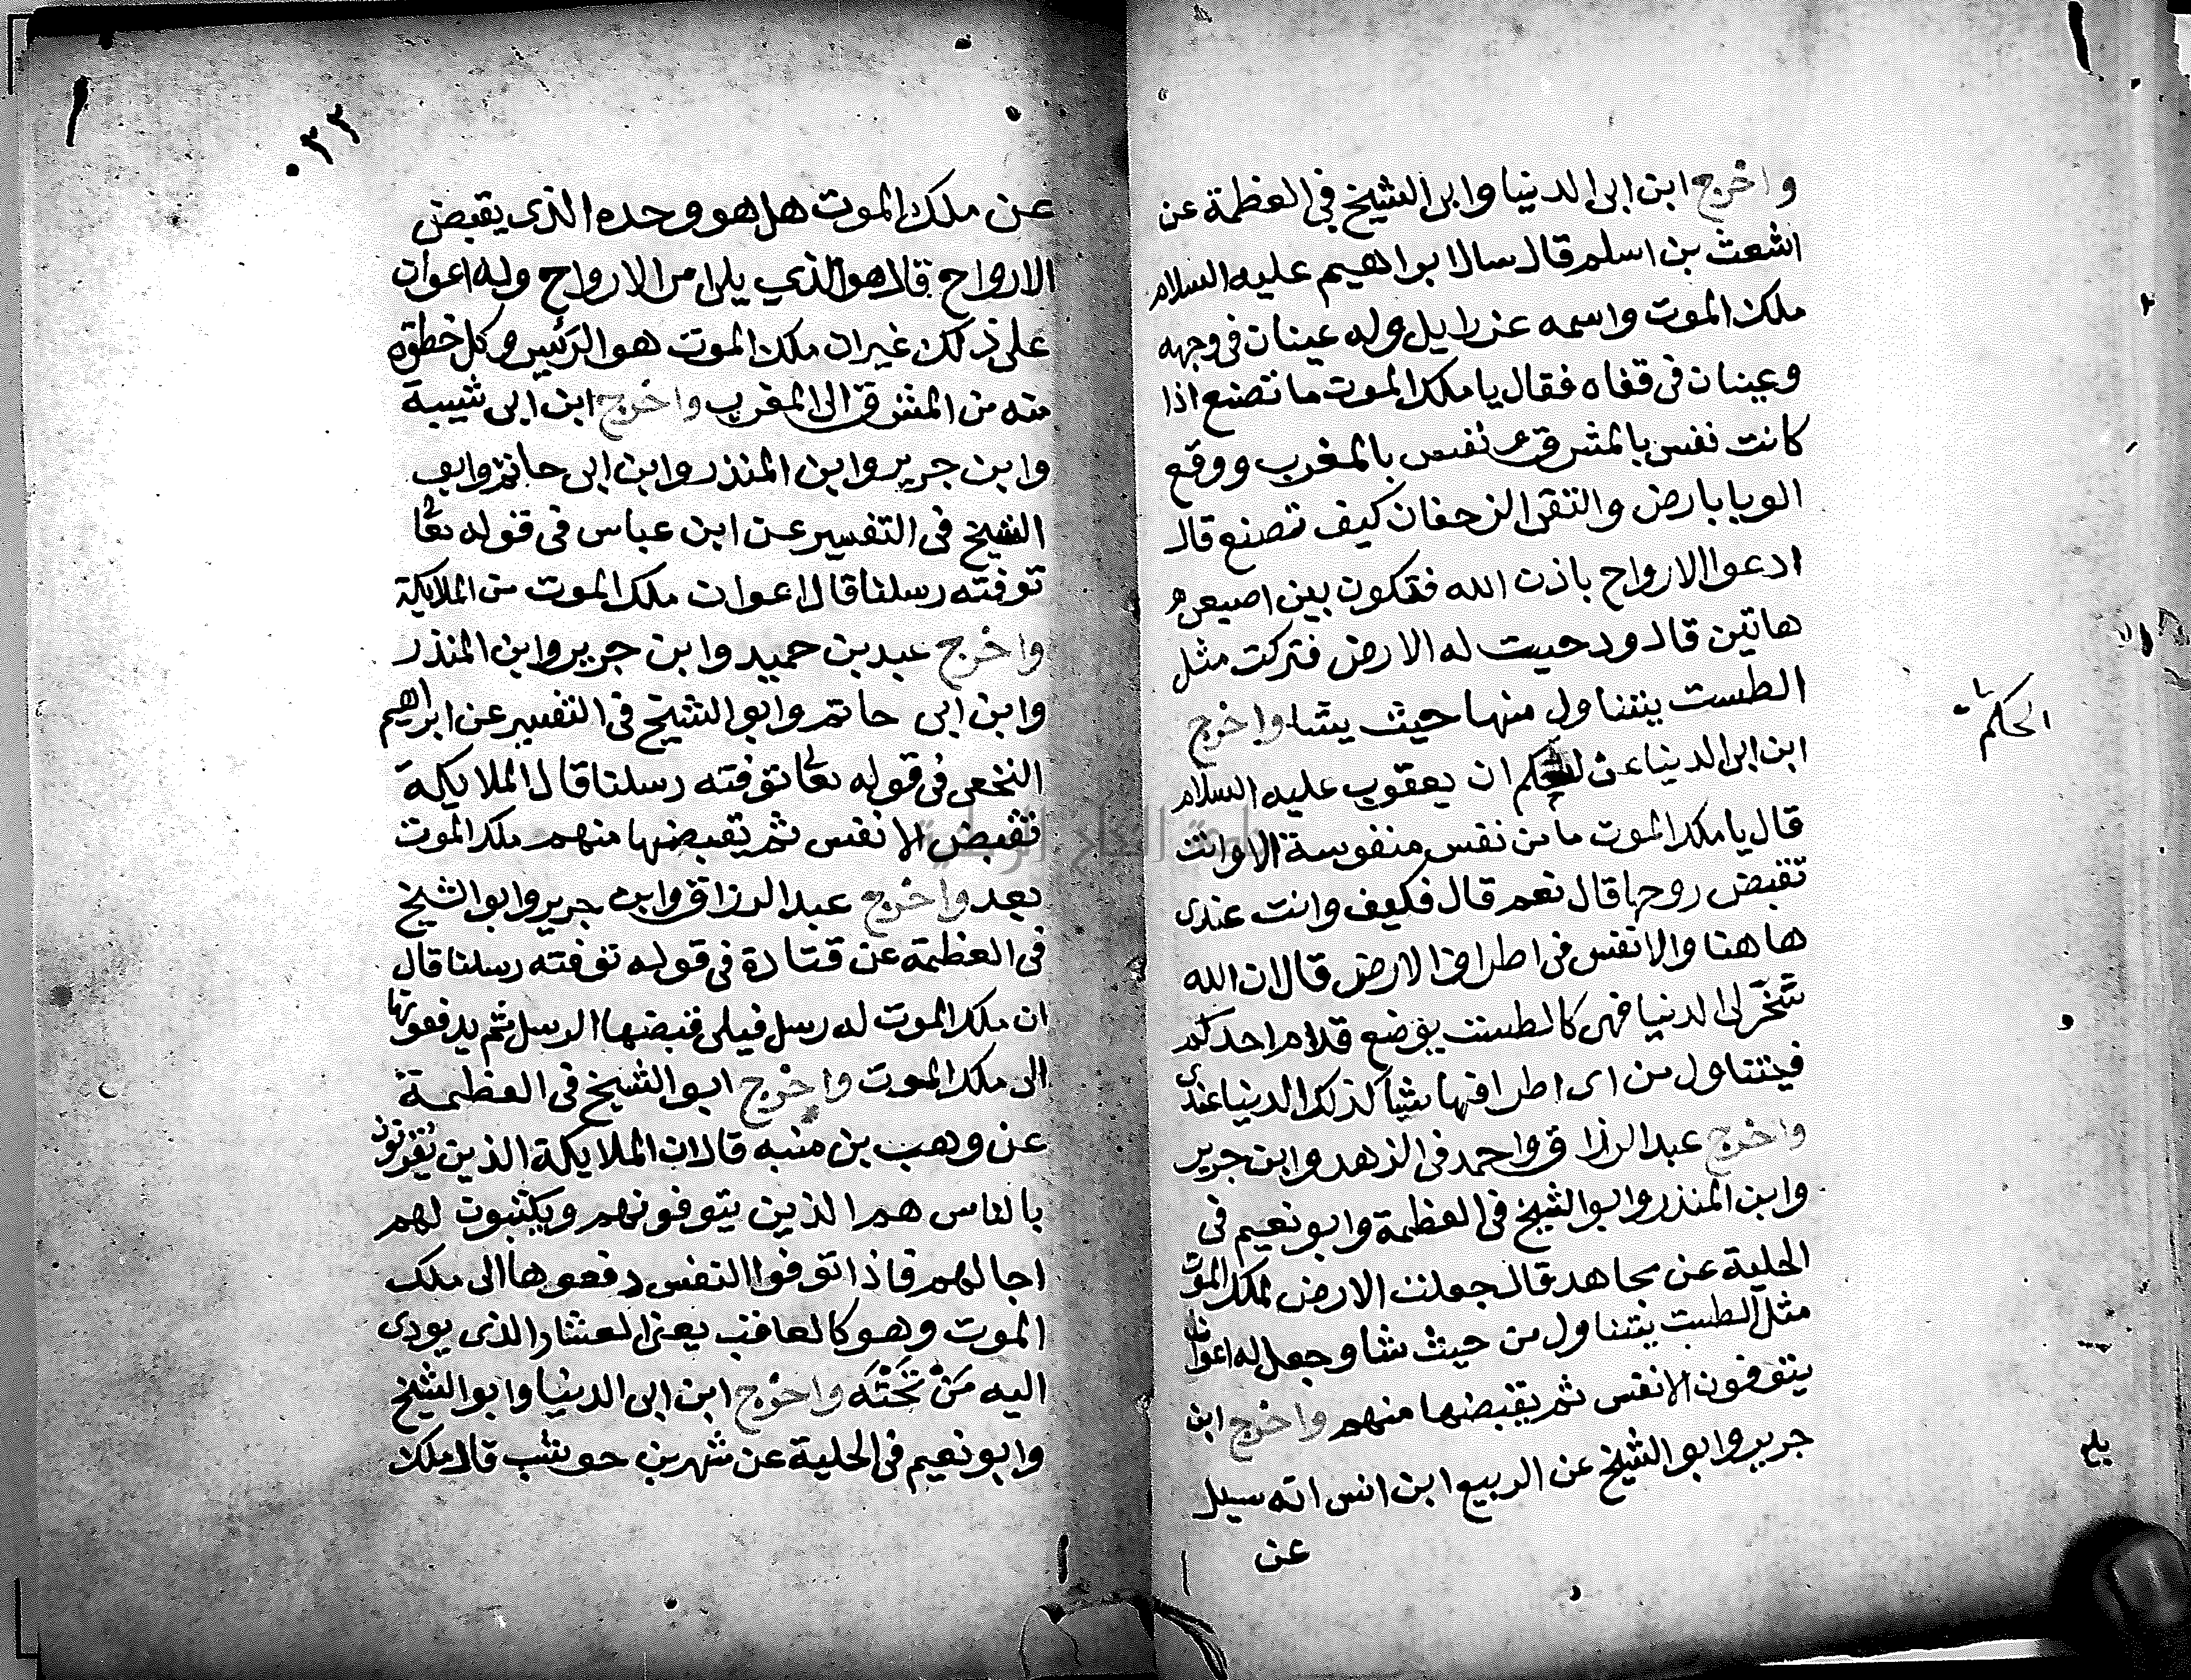 واخرج ابن ابى الدنيا وابى الشيخ فى العظمة عن
اشعث بن اسلم قال سال ابراهيم عليه السلام
ملك الموت واسمه عزرايل وله عينان فى وجهه
وعينان فى قفاه فقال يا ملك الموت ما تصنع اذا
كانت نفس بالمشرق و نفس بالمغرب ووقع
الوبا بارض والتقى الزحفان كيف تصنع قال
ادعوا الارواح باذن الله فتكون بين اصبعى
هاتين قال ودحيت له الارض فتركت مثل
الطست يتناول منها حيث يشا واخرج
ابن ابى الدنيا عن الحكم ان يعقوب عليه السلام
الحكم
قال يا ملك الموت ما من نفس منفوسة الا وانت
تقبض روحها قال نعم قال فكيف وانت عندى
هاهنا والانفس فى اطراف الارض قال ان الله
سخر لى الدنيا فهى كالطست يوضع قدام احدكم
فيتناول من اى اطرافها شيا كذلك الدنيا عندى
واخرج عبد الرزاق واحمد فى الزهد وابن جرير
وابن المنذر وابو الشيخ فى العظمة وابو نعيم فى
الحلية عن مجاهد قال جعلت الارض لملك الموت
مثل الطست يتناول من حيث شا وجعل له اعوانا
يتوفون الانفس ثم يقبضها منهم واخرج ابن
جرير وابو الشيخ عن الربيع ابن انس انه سيل
عن
٠٣٢
عن ملك الموت هل هو وحده الذى يقبض
الارواح قال هو الذي يلى امر الارواح وله اعوان
على ذلك غير ان ملك الموت هو الرئيس وكل خطوه
منه من المشرق الى المغرب واخرج ابن ابى شيبة
وابن جرير وابن المنذر وابن ابى حاتم وابو
الشيخ فى التفسير عن ابن عباس فى قوله تعا
توفته رسلنا قال اعوان ملك الموت من الملايكة
واخرج عبد بن حميد وابن جرير وابن المنذر
وابن ابى حاتم وابو الشيخ فى التفسير عن ابراهيم
النخعى فى قوله تعا توفته رسلنا قال الملايكة
تقبض الانفس ثم يقبضها منهم ملك الموت
بعد واخرج عبد الرزاق وابن جرير وابو الشيخ
فى العظمة عن قتادة فى قوله توفته رسلنا قال
ان ملك الموت له رسل فيلى قبضها الرسل ثم يدفعونها
الى ملك الموت واخرج ابو الشيخ فى العظمة
عن وهب بن منبه قال ان الملايكة الذين يقرنون
بالناس هم الذين يتوفونهم ويكتبون لهم
اجالهم فاذا توفوا النفس دفعوها الى ملك
الموت وهو كالعاقب يعنى العشار الذى يودى
اليه مَنْ تَحْتَه واخرج ابن ابى الدنيا وابو الشيخ
وابو نعيم فى الحلية عن شهر بن حوشب قال ملك